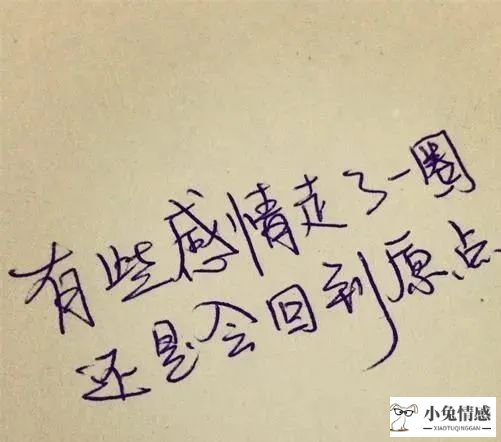 有些感情走了一圈
还是会回到原点
小兔情感
XIAOTUQINGGAN